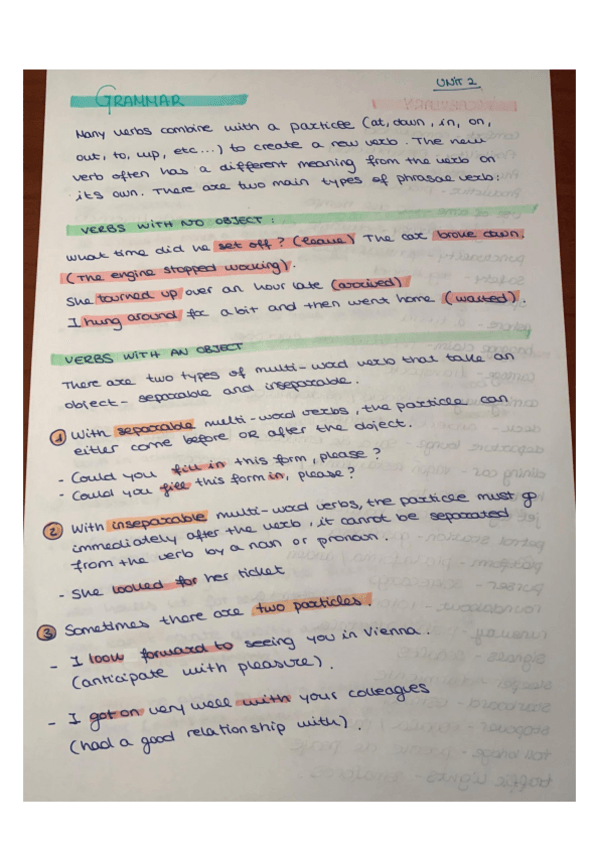 UNIT 2
GRAMMAR
Many verbs combine with a particle (at, down, in, on,
out, to, up, etc...) to create a new verb. The new
verb often has a different meaning from the verb on
its own. There are two main types of phrasal verb:
VERBS WITH NO OBJECT:
What time did he set off? (leave) The car broke down.
(The engine stopped working).
She tourned up over an hour late (arrived)
I hung around for a bit and then went home (waited).
VERBS WITH AN OBJECT
There are two types of multi-word verb that take an
object - separable and inseparable.
1 With separable multi-word verbs, the particle can
either come before OR after the object.
- Could you fill in this form, please?
- Could you fill this form in, please?
2 With inseparable multi-word verbs, the particle must go
immediately after the verb, it cannot be separated
from the verb by a noun or pronoun.
- She looked for her ticket
3 Sometimes there are two particles.
- I look forward to seeing you in Vienna.
(anticipate with pleasure).
- I got on very well with your colleagues
(had a good relationship with).